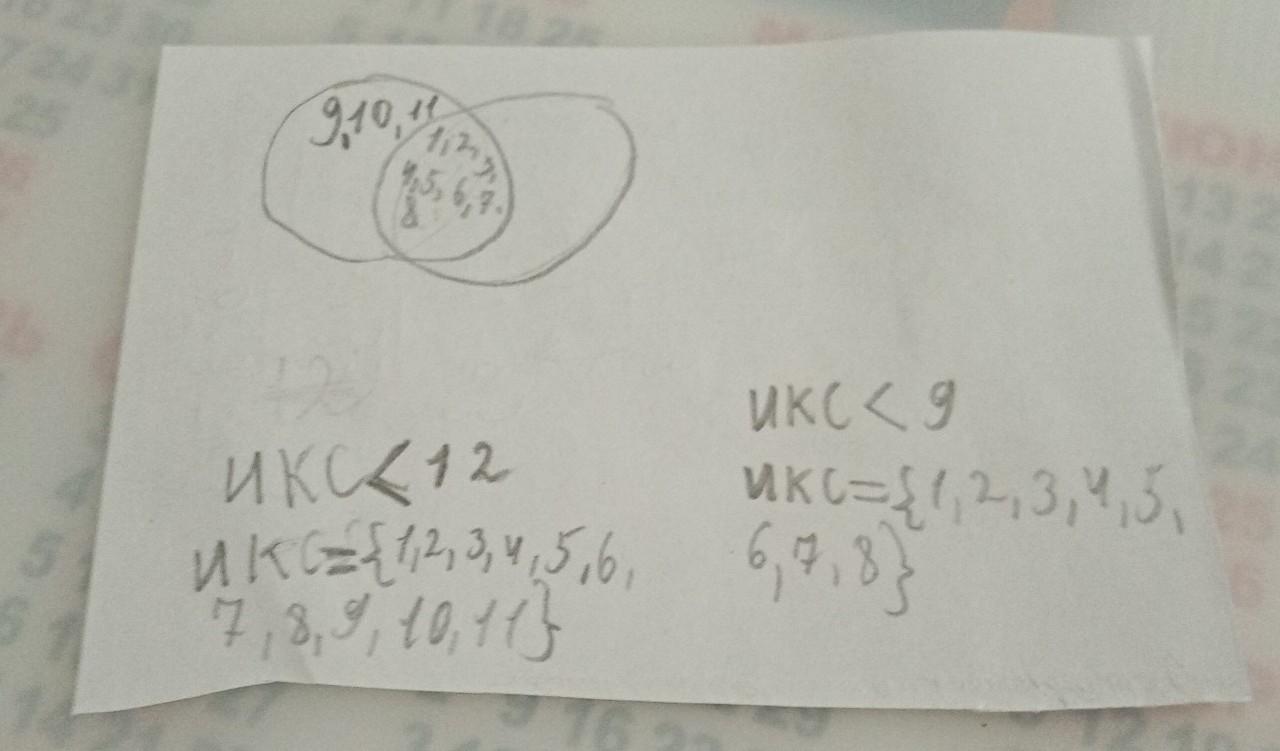 9,10,11
1,2,3,
4,5,6,7.
8
икс<12
икс={1,2,3,4,5,6,
7,8,9,10,11}
икс<9
икс={1,2,3,4,5,
6,7,8}